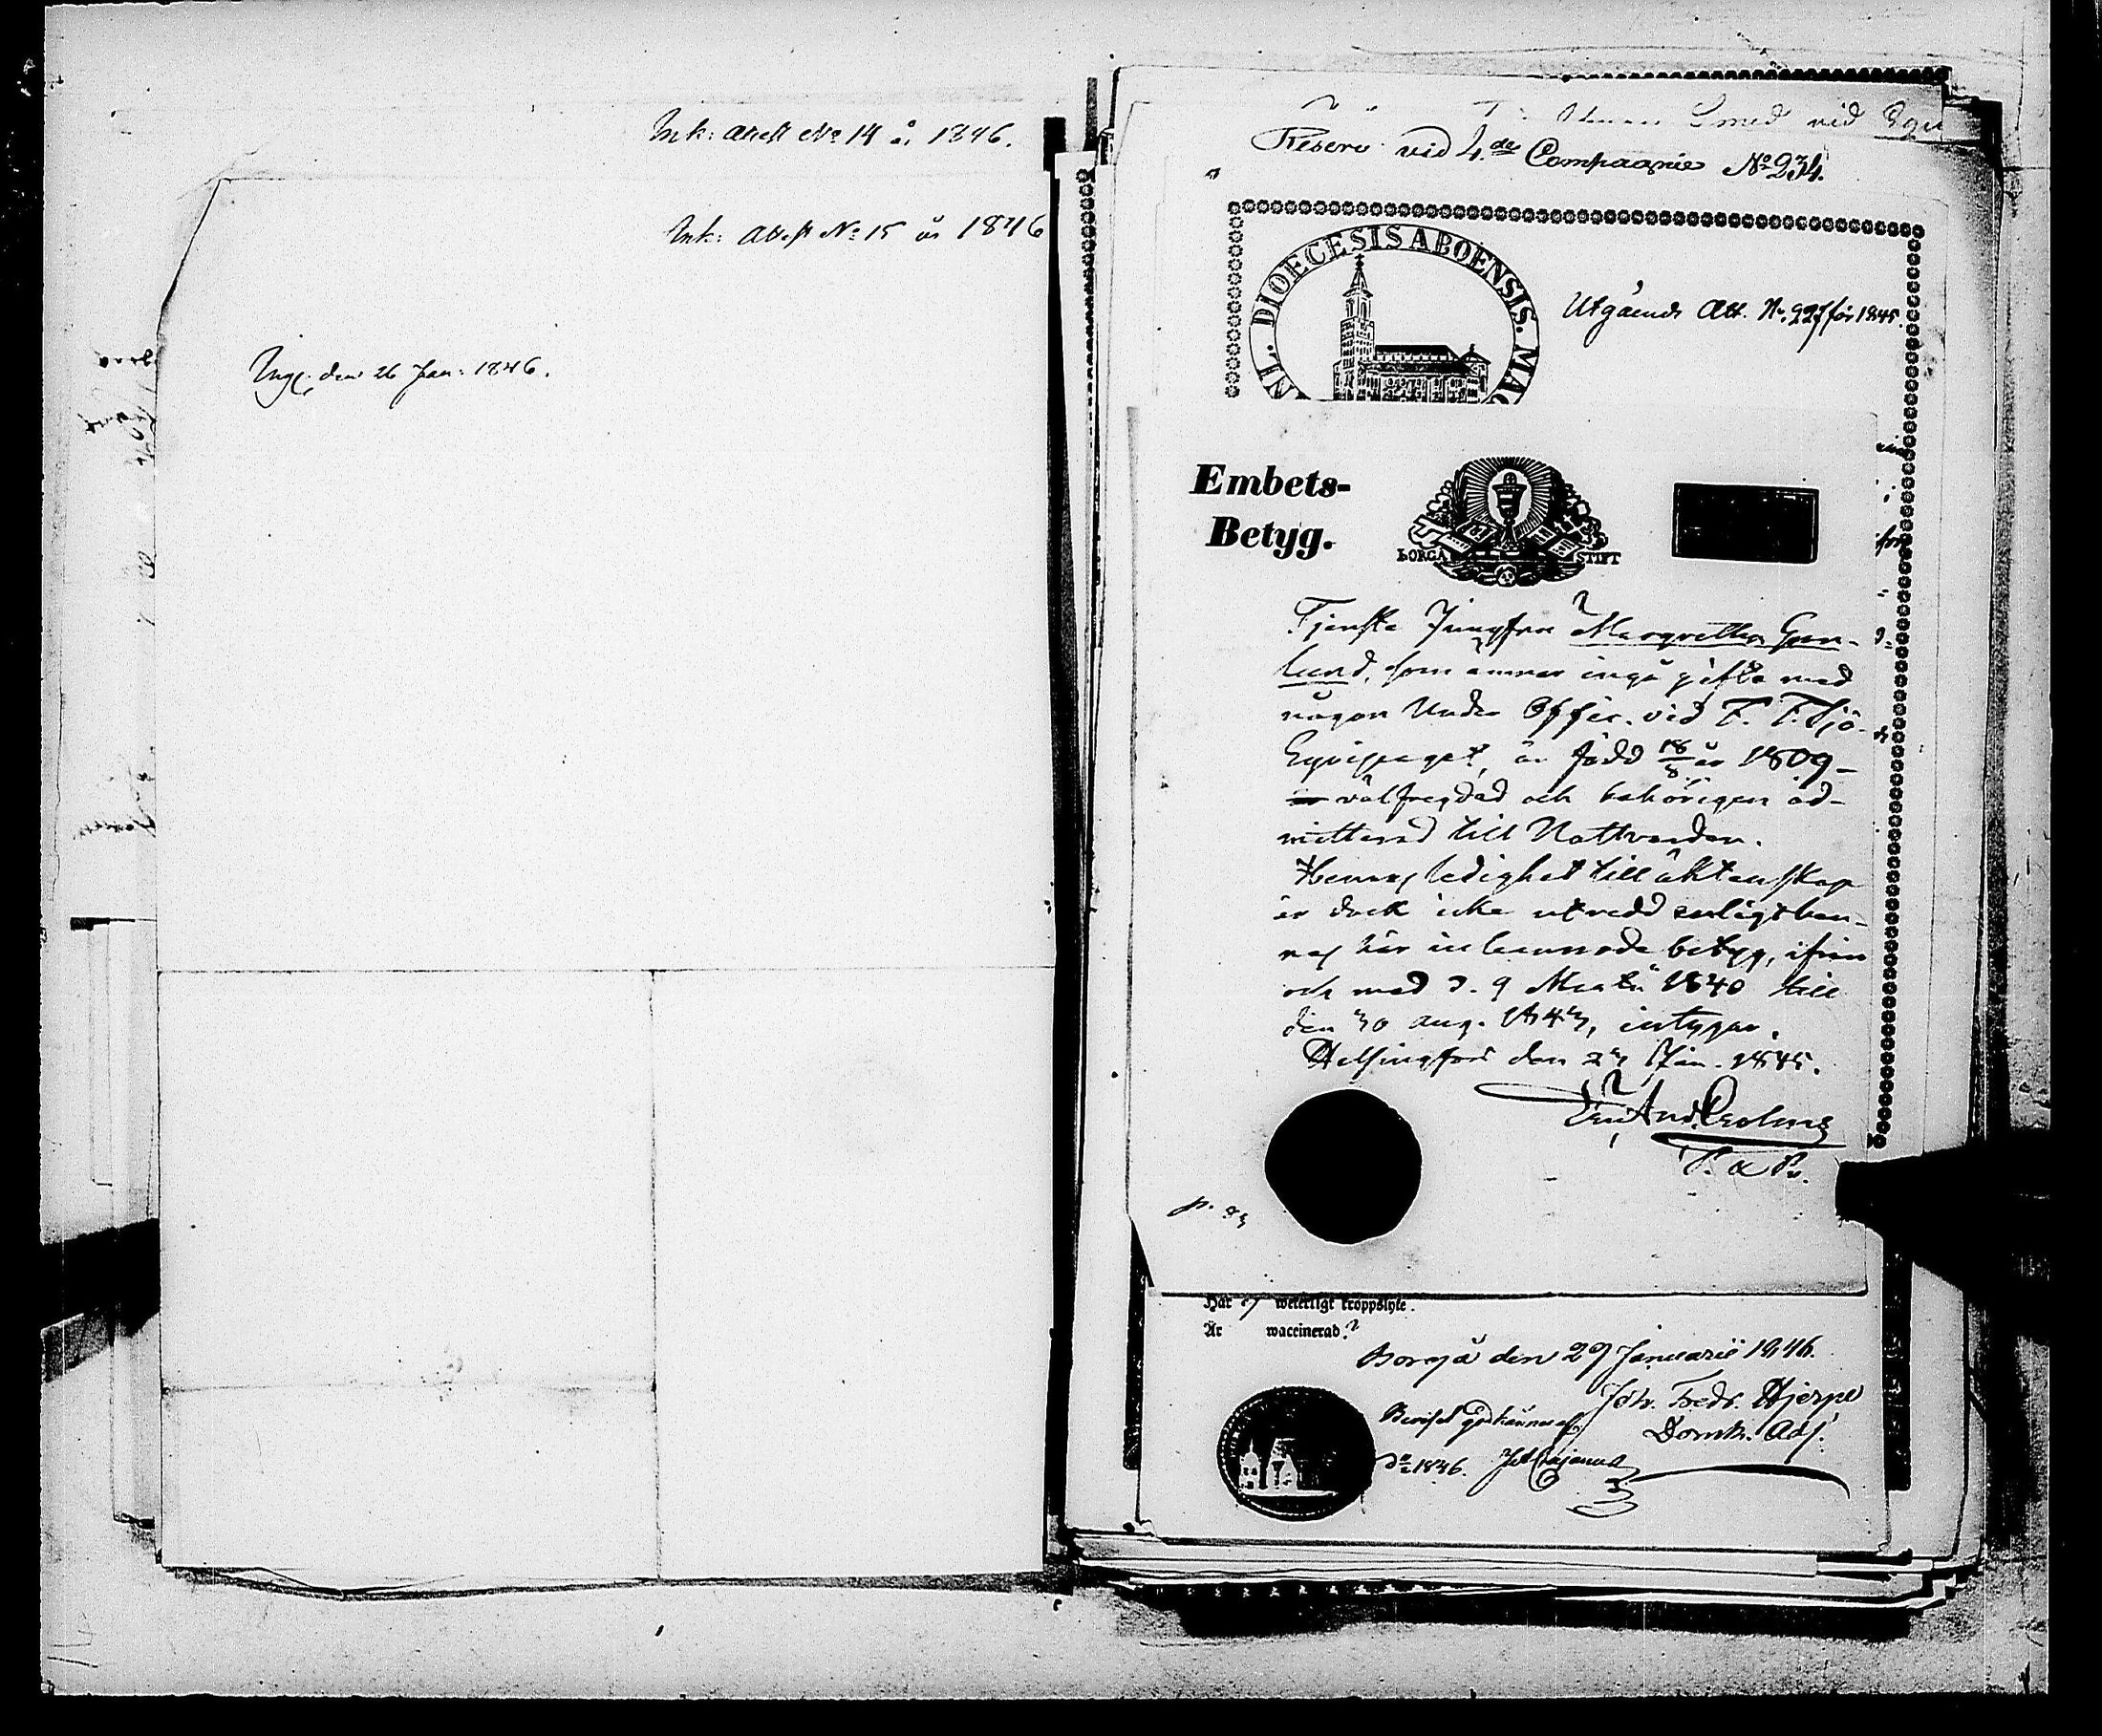 Ink: Attest No 14 år 1846.
Ink: Attest No 15 år 1846
Ingl. den 26 Jan: 1846.
Smed vid
Reserv vid 4.de Compagnie No 234.
DIOECESIS ABOENSIS. MAG
Utgående Att. No. 227 för 1845.
Embets-
Betyg.
BORGÅ STIFT
Tjenste Jungfrun Margretha Gran-
lund, som ämnar ingå gifte med
någon Under Offic. vid F. F. Sjö-
Equipaget, är född 18/8 år 1809 –
välfrejdad och behörigen ad-
mitterad till Nattvarden.
Hennes ledighet till äktenskap
är dock icke utredd enligt hen-
nes här inlemnade betyg, ifrån
och med d. 9 Martii 1840 till
den 30 aug. 1843, intygar.
Helsingfors den 27 Jan. 1845.
p. 83
Har ej weterligt kroppslyte.
Är waccinerad.
Borgå den 29 Januarii 1846.
Joh. Fredr. Hjerpe
Domk. Adj.
Beviset godkännes
1846.